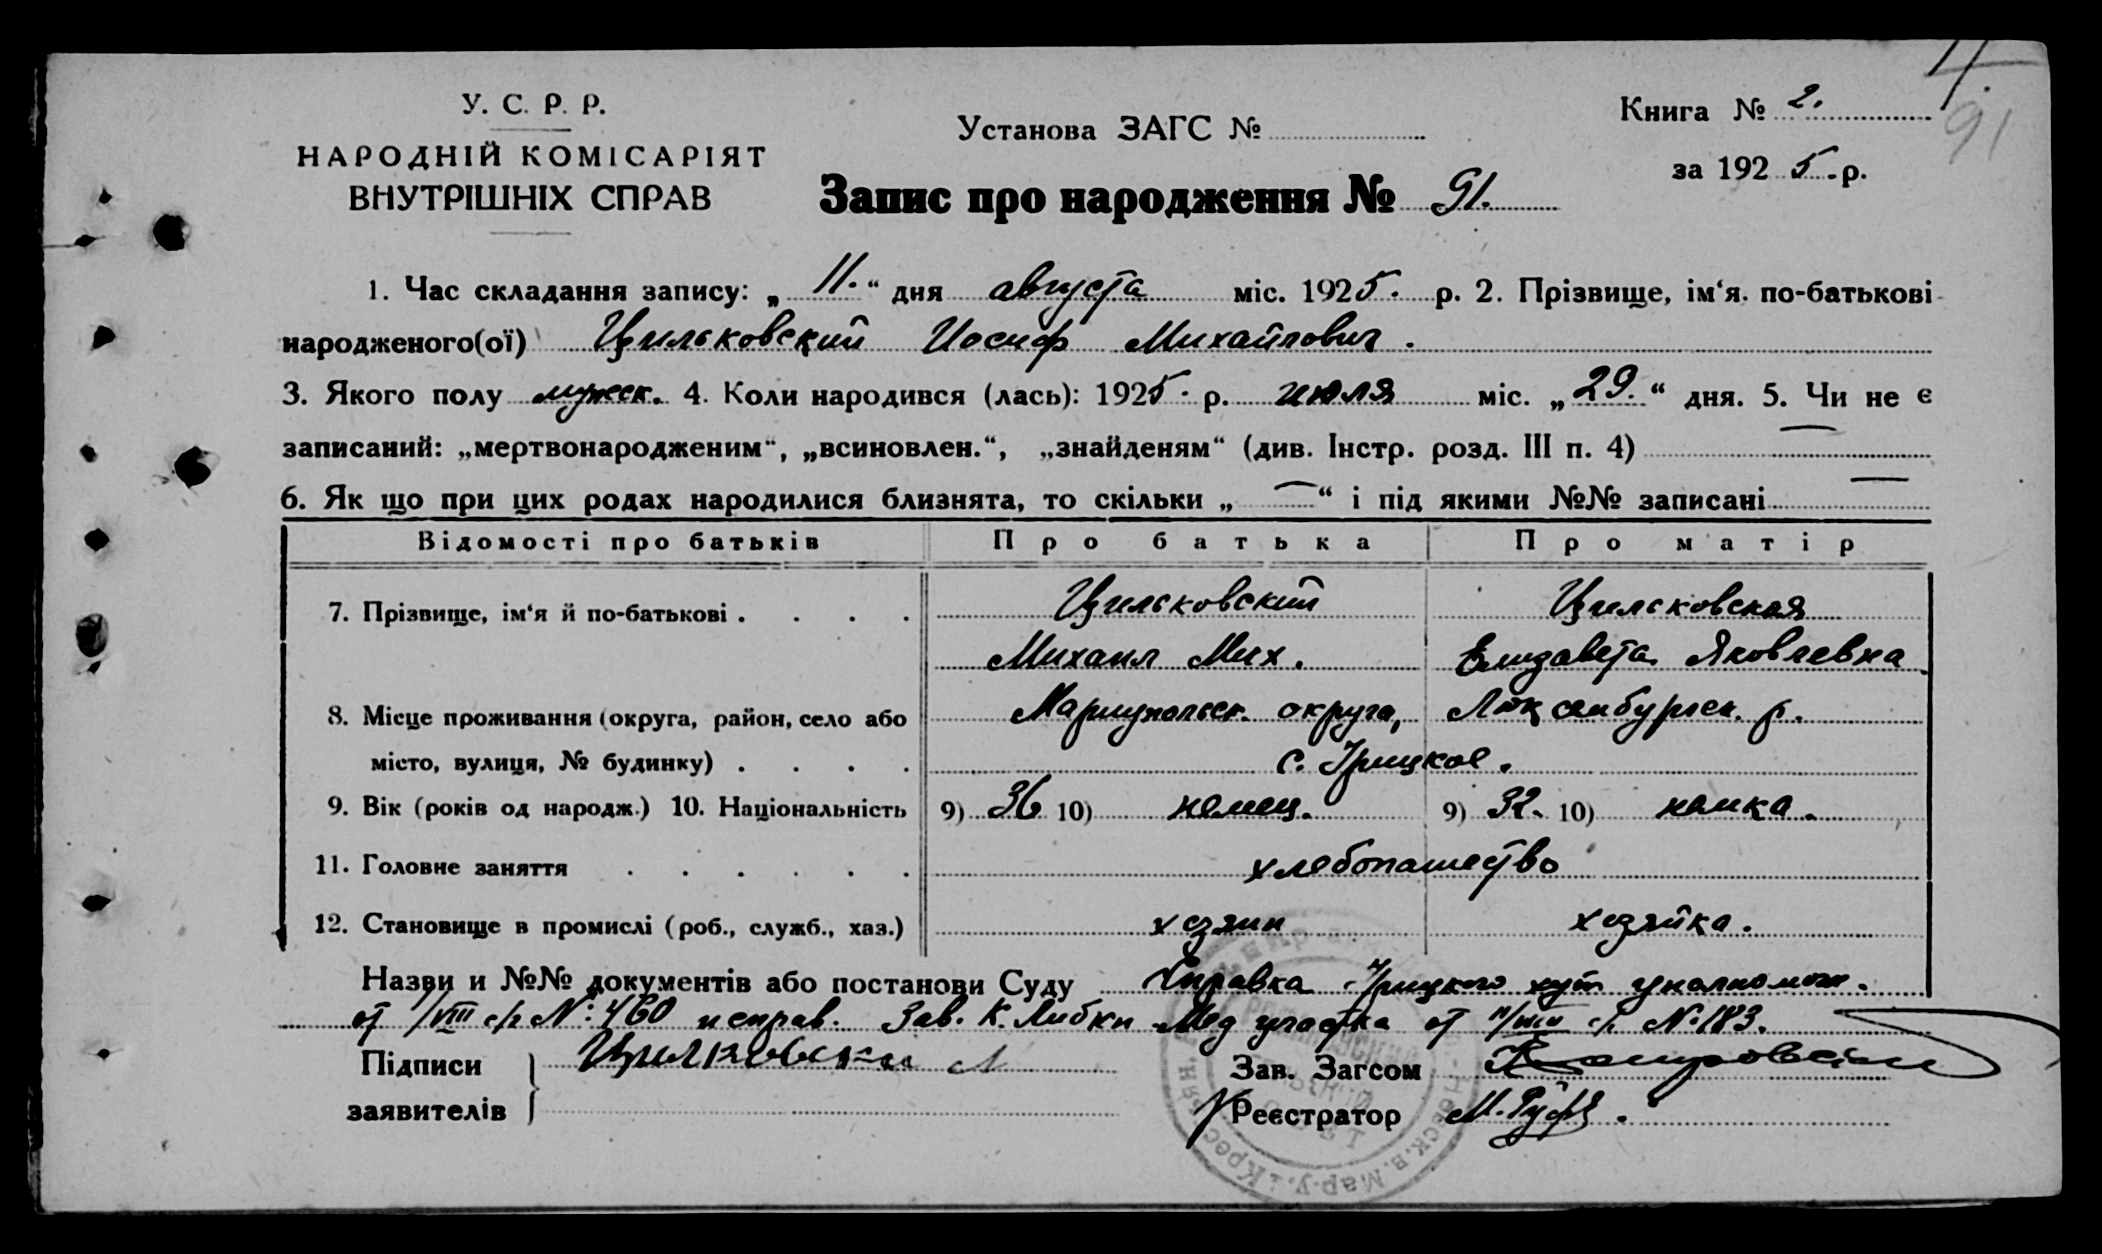 У. С. Р. Р.
НАРОДНІЙ КОМІСАРІЯТ
ВНУТРІШНІХ СПРАВ
Установа ЗАГС №
Книга № 2.
91
за 1925 р.
Запис про народження № 91.
1. Час складання запису: „ 11. “ дня августа міс. 1925. р. 2. Прізвище, ім‘я. по-батькові
народженого(ої) Цильковский Иосиф Михайлович.
3. Якого полу мужск. 4. Коли народився (лась): 1925. р. июля міс. „ 29. “ дня. 5. Чи не є
записаний: „мертвонародженим“, „всиновлен.“, „знайденям“ (див. Інстр. розд. III п. 4) —
6. Як що при цих родах народилися близнята, то скільки „ — “ і під якими №№ записані —
Відомості про батьків Про батька Про матір
7. Прізвище, ім‘я й по-батькові . . . . Цильковский Цильсковская
Михаил Мих. Елизавета Яковлевна
8. Місце проживання (округа, район, село або Мариупольск. округа, Люксембургск. р.
місто, вулиця, № будинку) . . . . с. Урицкое.
9. Вік (років од народж.) 10. Національність 9) 36 10) немец. 9) 32. 10) немка.
11. Головне заняття . . . . . . хлебопашество
12. Становище в промислі (роб., служб., хаз.) хозяин хозяйка.
Назви и №№ документів або постанови Суду Справка Урицкого хут уполномоч.
от /VIII с/г №: 460 и справ. Зав. К. Либкн Мед участка от 11/VIII с/г. №183.
Підписи Цилковски
заявителів
Зав. Загсом
Реєстратор М.